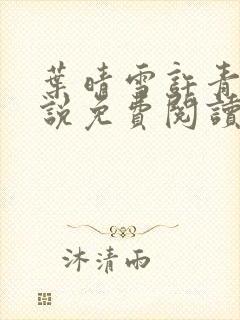 葉晴雪許青
說免費閱讀
沐清雨